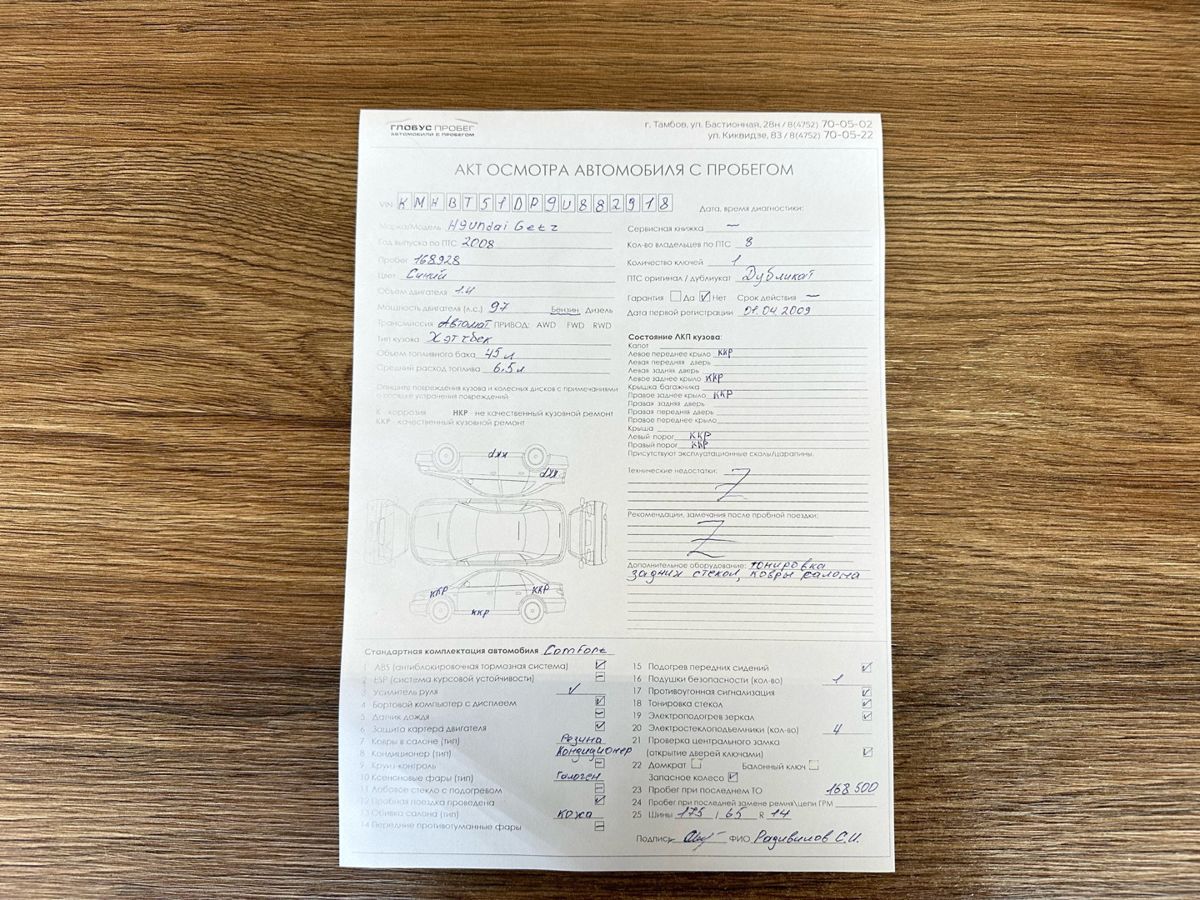 ГЛОБУС ПРОБЕГ
АВТОМОБИЛИ С ПРОБЕГОМ
г. Тамбов, ул. Бастионная, 28н / 8(4752) 70-05-02
ул. Киквидзе, 83 / 8(4752) 70-05-22
АКТ ОСМОТРА АВТОМОБИЛЯ С ПРОБЕГОМ
VIN KMHBT51DP9U882918
Дата, время диагностики:
Марка/Модель Hyundai Getz
Год выпуска по ПТС 2008
Пробег 168928
Цвет Синий
Объем двигателя 1.4
Мощность двигателя (л.с.) 97 Бензин Дизель
Трансмиссия Автомат ПРИВОД: AWD FWD RWD
Тип кузова Хэтчбек
Объем топливного бака 45 л
Средний расход топлива 6.5 л
Опишите повреждения кузова и колесных дисков с примечаниями
о способе устранения повреждений
К - коррозия НКР - не качественный кузовной ремонт
ККР - качественный кузовной ремонт
ККР
ККР
ККР
ККР
ККР
Сервисная книжка —
Кол-во владельцев по ПТС 8
Количество ключей 1
ПТС оригинал / дубликат Дубликат
Гарантия Да Нет Срок действия —
Дата первой регистрации 01.04.2009
Состояние ЛКП кузова:
Капот
Левое переднее крыло ККР
Левая передняя дверь
Левая задняя дверь
Левое заднее крыло ККР
Крышка багажника
Правое заднее крыло ККР
Правая задняя дверь
Правая передняя дверь
Правое переднее крыло
Крыша
Левый порог ККР
Правый порог ККР
Присутствуют эксплуатационные сколы/царапины.
Технические недостатки: Z
Рекомендации, замечания после пробной поездки:
Z
Дополнительное оборудование: тонировка
задних стекол, ковры салона
Стандартная комплектация автомобиля Comfort
1 ABS (антиблокировочная тормозная система)
2 ESP (система курсовой устойчивости)
3 Усилитель руля
4 Бортовой компьютер с дисплеем
5 Датчик дождя
6 Защита картера двигателя
7 Ковры в салоне (тип) Резина
8 Кондиционер (тип) Кондиционер
9 Круиз-контроль
10 Ксеноновые фары (тип) Галоген
11 Лобовое стекло с подогревом
12 Пробная поездка проведена
13 Обивка салона (тип) кожа
14 Передние противотуманные фары
15 Подогрев передних сидений
16 Подушки безопасности (кол-во) 1
17 Противоугонная сигнализация
18 Тонировка стекол
19 Электроподогрев зеркал
20 Электростеклоподъемники (кол-во) 4
21 Проверка центрального замка
(открытие дверей ключами)
22 Домкрат Балонный ключ
Запасное колесо
23 Пробег при последнем ТО 168 500
24 Пробег при последней замене ремня\цепи ГРМ
25 Шины 175 / 65 R 14
Подпись ФИО Радивилов С.И.